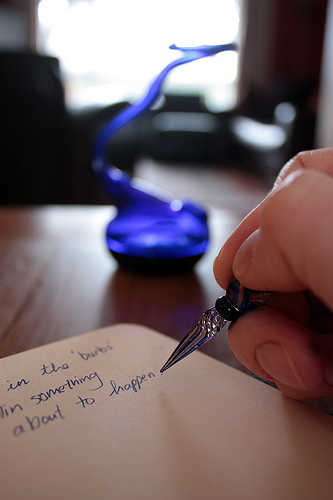 in the 'burbs'
in something
about to happen.